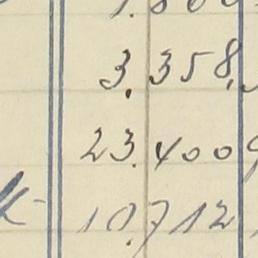 3.358,
23.400
10.712